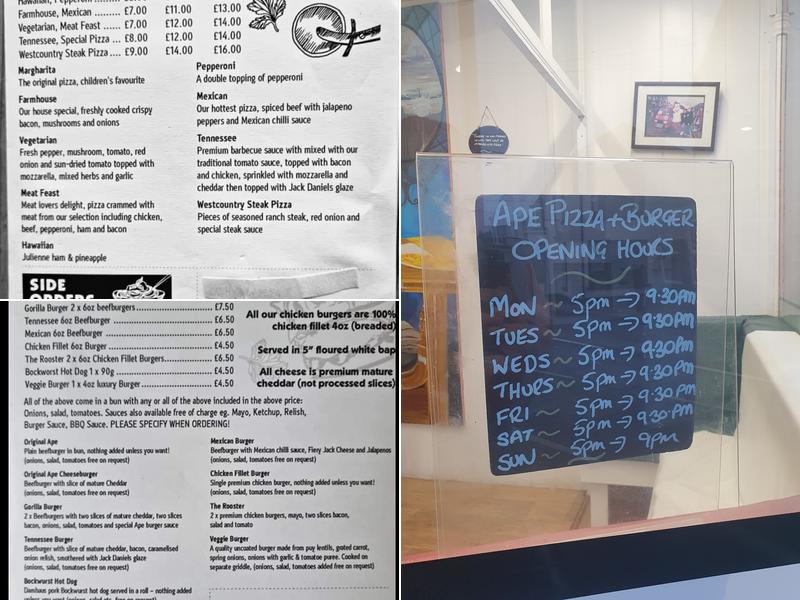 Hawaiian, Pepperoni
£13.00
Farmhouse, Mexican ......... £7.00 £11.00 £14.00
Vegetarian, Meat Feast ..... £7.00 £12.00 £14.00
Tennessee, Special Pizza ... £8.00 £12.00 £14.00
Westcountry Steak Pizza .... £9.00 £14.00 £16.00
Margharita
The original pizza, children's favourite
Farmhouse
Our house special, freshly cooked crispy
bacon, mushrooms and onions
Vegetarian
Fresh pepper, mushroom, tomato, red
onion and sun-dried tomato topped with
mozzarella, mixed herbs and garlic
Meat Feast
Meat lovers delight, pizza crammed with
meat from our selection including chicken,
beef, pepperoni, ham and bacon
Hawaiian
Julienne ham & pineapple
Pepperoni
A double topping of pepperoni
Mexican
Our hottest pizza, spiced beef with jalapeno
peppers and Mexican chilli sauce
Tennessee
Premium barbecue sauce with mixed with our
traditional tomato sauce, topped with bacon
and chicken, sprinkled with mozzarella and
cheddar then topped with Jack Daniels glaze
Westcountry Steak Pizza
Pieces of seasoned ranch steak, red onion and
special steak sauce
SIDE
ORDERS
Gorilla Burger 2 x 6oz beefburgers ........ £7.50
Tennessee 6oz Beefburger ........ £6.50
Mexican 6oz Beefburger ........ £6.50
Chicken Fillet 6oz Burger ........ £4.50
The Rooster 2 x 6oz Chicken Fillet Burgers ........ £6.50
Bockworst Hot Dog 1 x 90g ........ £4.50
Veggie Burger 1 x 4oz luxury Burger ........ £4.50
All our chicken burgers are 100%
chicken fillet 4oz (breaded)
Served in 5" floured white bap
All cheese is premium mature
cheddar (not processed slices)
All of the above come in a bun with any or all of the above included in the above price:
Onions, salad, tomatoes. Sauces also available free of charge eg. Mayo, Ketchup, Relish,
Burger Sauce, BBQ Sauce. PLEASE SPECIFY WHEN ORDERING!
Original Ape
Plain beefburger in bun, nothing added unless you want!
(onions, salad, tomatoes free on request)
Original Ape Cheeseburger
Beefburger with slice of mature Cheddar
(onions, salad, tomatoes free on request)
Gorilla Burger
2 x Beefburgers with two slices of mature cheddar, two slices
bacon, onions, salad, tomatoes and special Ape burger sauce
Tennessee Burger
Beefburger with slice of mature cheddar, bacon, caramelised
onion relish, smothered with Jack Daniels glaze
(onions, salad, tomatoes free on request)
Bockwurst Hot Dog
Damhaus pork Bockwurst hot dog served in a roll – nothing added
Mexican Burger
Beefburger with Mexican chilli sauce, Fiery Jack Cheese and Jalapenos
(onions, salad, tomatoes free on request)
Chicken Fillet Burger
Single premium chicken burger, nothing added unless you want!
(onions, salad, tomatoes free on request)
The Rooster
2 x premium chicken burgers, mayo, two slices bacon,
salad and tomato
Veggie Burger
A quality uncoated burger made from puy lentils, grated carrot,
spring onions, onions with garlic & tomato puree. Cooked on
separate griddle, (onions, salad, tomatoes added free on request)
APE PIZZA + BURGER
OPENING HOURS
MON ~ 5pm → 9.30PM
TUES ~ 5pm → 9.30PM
WEDS ~ 5pm → 9.30PM
THURS ~ 5pm → 9.30PM
FRI ~ 5pm → 9.30PM
SAT ~ 5pm → 9.30PM
SUN ~ 5pm → 9pm